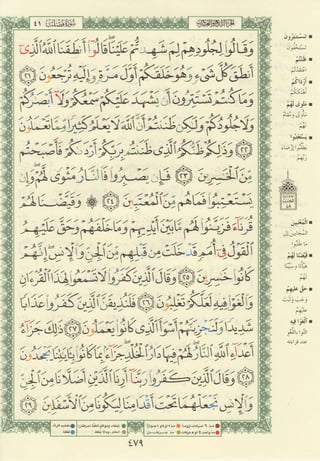 ٤١
سورة فصلت
الجزء الرابع والعشرون
وَقَالُوا۟ لِجُلُودِهِمْ لِمَ شَهِدتُّمْ عَلَيْنَا ۖ قَالُوٓا۟ أَنطَقَنَا ٱللَّهُ ٱلَّذِىٓ
أَنطَقَ كُلَّ شَىْءٍ وَهُوَ خَلَقَكُمْ أَوَّلَ مَرَّةٍ وَإِلَيْهِ تُرْجَعُونَ ٢١
وَمَا كُنتُمْ تَسْتَتِرُونَ أَن يَشْهَدَ عَلَيْكُمْ سَمْعُكُمْ وَلَآ أَبْصَٰرُكُمْ
وَلَا جُلُودُكُمْ وَلَٰكِن ظَنَنتُمْ أَنَّ ٱللَّهَ لَا يَعْلَمُ كَثِيرًا مِّمَّا تَعْمَلُونَ
٢٢ وَذَٰلِكُمْ ظَنُّكُمُ ٱلَّذِى ظَنَنتُم بِرَبِّكُمْ أَرْدَىٰكُمْ فَأَصْبَحْتُم
مِّنَ ٱلْخَٰسِرِينَ ٢٣ فَإِن يَصْبِرُوا۟ فَٱلنَّارُ مَثْوًى لَّهُمْ ۖ وَإِن
يَسْتَعْتِبُوا۟ فَمَا هُم مِّنَ ٱلْمُعْتَبِينَ ٢٤ ۞ وَقَيَّضْنَا لَهُمْ
قُرَنَآءَ فَزَيَّنُوا۟ لَهُم مَّا بَيْنَ أَيْدِيهِمْ وَمَا خَلْفَهُمْ وَحَقَّ عَلَيْهِمُ
ٱلْقَوْلُ فِىٓ أُمَمٍ قَدْ خَلَتْ مِن قَبْلِهِم مِّنَ ٱلْجِنِّ وَٱلْإِنسِ ۖ إِنَّهُمْ
كَانُوا۟ خَٰسِرِينَ ٢٥ وَقَالَ ٱلَّذِينَ كَفَرُوا۟ لَا تَسْمَعُوا۟ لِهَٰذَا ٱلْقُرْءَانِ
وَٱلْغَوْا۟ فِيهِ لَعَلَّكُمْ تَغْلِبُونَ ٢٦ فَلَنُذِيقَنَّ ٱلَّذِينَ كَفَرُوا۟ عَذَابًا
شَدِيدًا وَلَنَجْزِيَنَّهُمْ أَسْوَأَ ٱلَّذِى كَانُوا۟ يَعْمَلُونَ ٢٧ ذَٰلِكَ جَزَآءُ
أَعْدَآءِ ٱللَّهِ ٱلنَّارُ ۖ لَهُمْ فِيهَا دَارُ ٱلْخُلْدِ ۖ جَزَآءًۢ بِمَا كَانُوا۟ بِـَٔايَٰتِنَا يَجْحَدُونَ
٢٨ وَقَالَ ٱلَّذِينَ كَفَرُوا۟ رَبَّنَآ أَرِنَا ٱلَّذَيْنِ أَضَلَّانَا مِنَ ٱلْجِنِّ
وَٱلْإِنسِ نَجْعَلْهُمَا تَحْتَ أَقْدَامِنَا لِيَكُونَا مِنَ ٱلْأَسْفَلِينَ ٢٩
٤٧٩